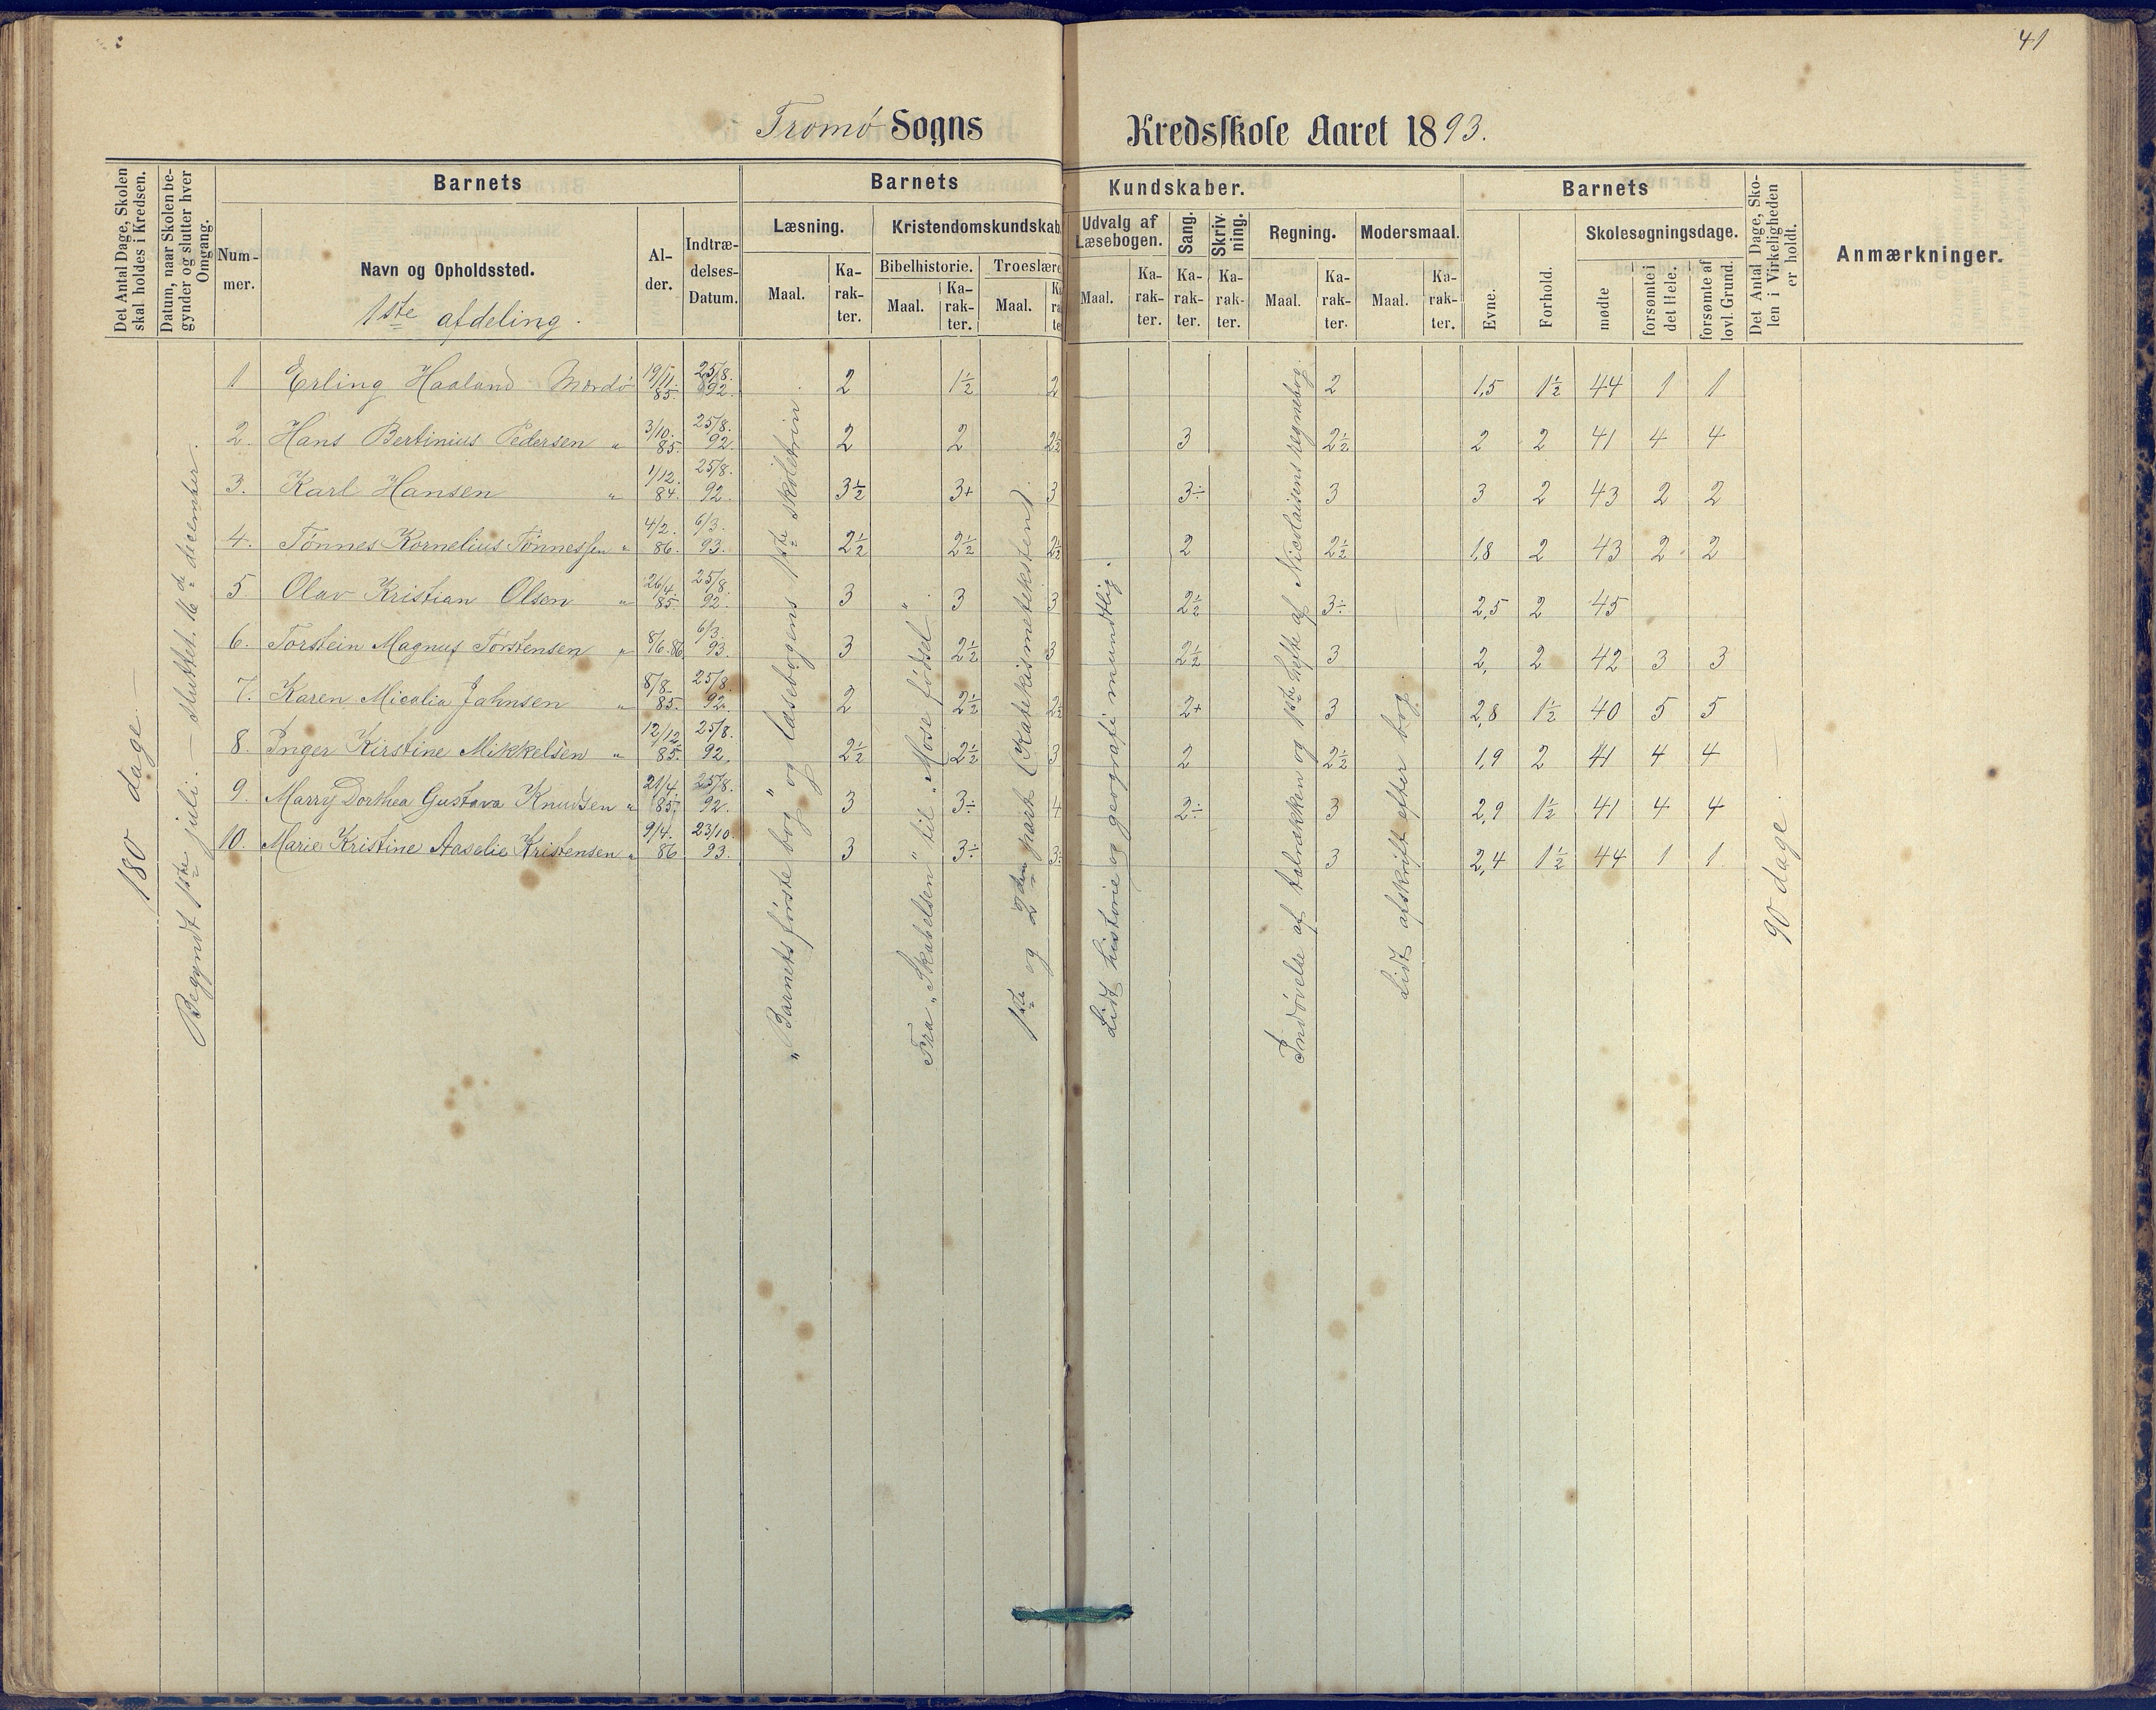 41
Tromø Sogns Kredsskole Aaret 1893.
Det Antal Dage, Skolen skal holdes i Kredsen.
Datum, naar Skolen begynder og slutter hver Omgang.
Barnets
Nummer.
Navn og Opholdssted.
1ste afdeling.
Alder.
Indtrædelses-Datum.
Barnets Kundskaber.
Læsning.
Maal.
Karakter.
Kristendomskundskab.
Bibelhistorie.
Maal.
Karakter.
Troeslære
Maal.
Udvalg af Læsebogen.
Maal.
Karakter.
Sang.
Karakter.
Skrivning.
Karakter.
Regning.
Maal.
Karakter.
Modersmaal.
Maal.
Karakter.
Barnets
Evne.
Forhold.
Skolesøgningsdage.
mødte
forsømte i det Hele.
forsømte af lovl. Grund.
Det Antal Dage, Skolen i Virkeligheden er holdt.
Anmærkninger.
180 dage. —
Begyndt 1ste juli. — sluttet 16de december.
1 Erling Haaland Mærdø 19/11. 85. 25/8. 92. 2 1½ 2 2 1,5 1½ 44 1 1
2. Hans Bertinius Pedersen " 3/10. 85. 25/8. 92 2 2 2½ 3 2½ 2 2 41 4 4
3. Karl Hansen " 1/12. 84. 25/8. 92. 3½ 3+ 3 3÷ 3 3 2 43 2 2
4. Tønnes Kornelius Tønnessen " 4/2. 86. 6/3. 93. 2½ 2½ 2½ 2 2½ 1,8 2 43 2 2
5 Olav Kristian Olsen " 26/4. 85. 25/8. 92. 3 3 3 2½ 3÷ 2,5 2 45
6. Torstein Magnus Torstensen " 8/6. 86 6/3. 93. 3 2½ 3 2½ 3 2, 2 42 3 3
7. Karen Micalia Jahnsen " 8/8. 85. 25/8. 92. 2 2½ 2½ 2+ 3 2,8 1½ 40 5 5
8. Inger Kirstine Mikkelsen " 12/12. 85. 25/8. 92. 2½ 2½ 3 2 2½ 1,9 2 41 4 4
9. Marry Dorthea Gustava Knudsen " 21/4. 85. 25/8. 92. 3 3÷ 4 2÷ 3 2,9 1½ 41 4 4
10. Marie Kristine Aaselie Kristensen " 9/4. 86 23/10. 93. 3 3÷ 3÷ 3 2,4 1½ 44 1 1
"Barnets første bog" og læsebogens 1ste skoletrin
Fra "Skabelsen" til "Mose fødsel".
1ste og 2den part (Katekismeteksten).
Lidt historie og geografi mundtlig.
Indøvelse af talrækken og 1ste hefte af Nicolaisens regnebog.
Lidt afskrift efter bog.
90 dage.